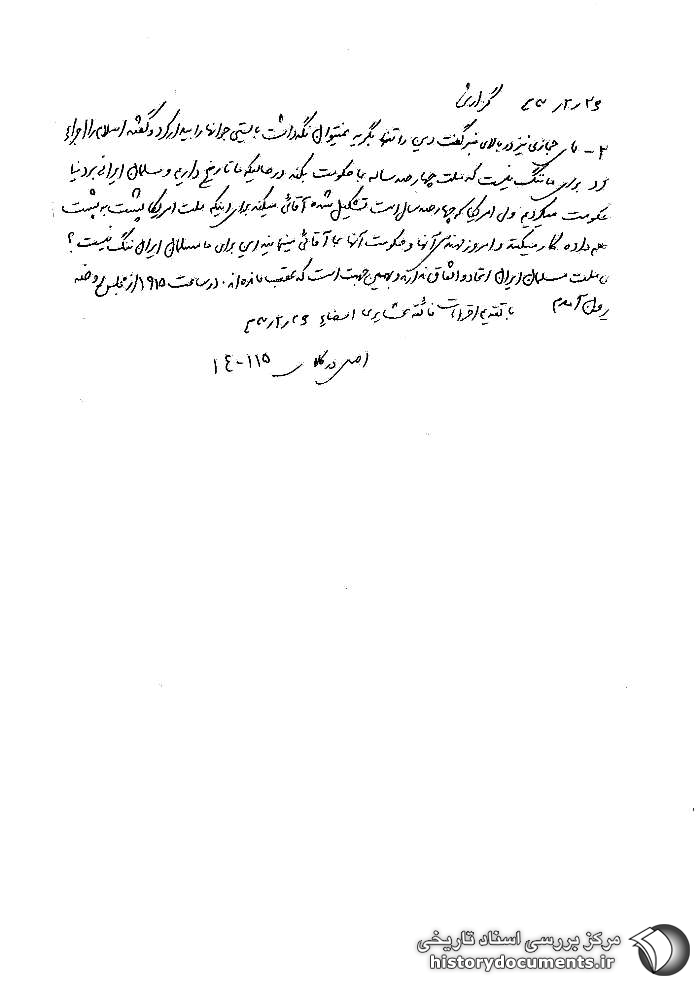 گزارش ۴۳/۲/۲۶
۲ - حجازی نیز در بالای منبر گفت دین را تنها بگریه نمیتوان نگهداشت بایستی جوانها را بیدار کرد و گفته اسلام را اجراء
کرد برای ما ننگ نیست که ملت چهارصد ساله بما حکومت بکند در حالیکه ما تاریخ داریم و مسلمان ایرانی بر دنیا
حکومت میکردیم ولی امریکا که چهارصد سال است تشکیل شده آقائی میکند برای اینکه ملت امریکا پشت به پشت
هم داده کار میکنند و امروز آنها و حکومت آنها بما آقائی مینمایند این برای ما مسلمان ایران ننگ نیست ؟
ملت مسلمان ایران اتحاد و اتفاق ندارند و بهمین جهت است که عقب مانده‌اند. در ساعت ۱۹۱۵ از مجلس روضه
بیرون آمدم
با تقدیم احترامات فائقه عشایری امضاء ۴۳/۲/۲۶
اصل در کلاسه ۱۱۵-۱۴
مرکز بررسی اسناد تاریخی
historydocuments.ir